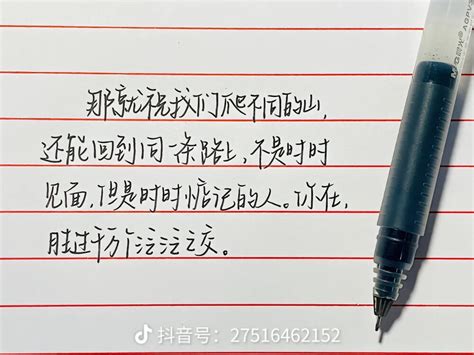 那就祝我们爬不同的山,
还能回到同一条路上,不是时时
见面,但是时时惦记的人。你在,
胜过千万个泛泛之交。
抖音号:27516462152
M&G晨光 AGPV3